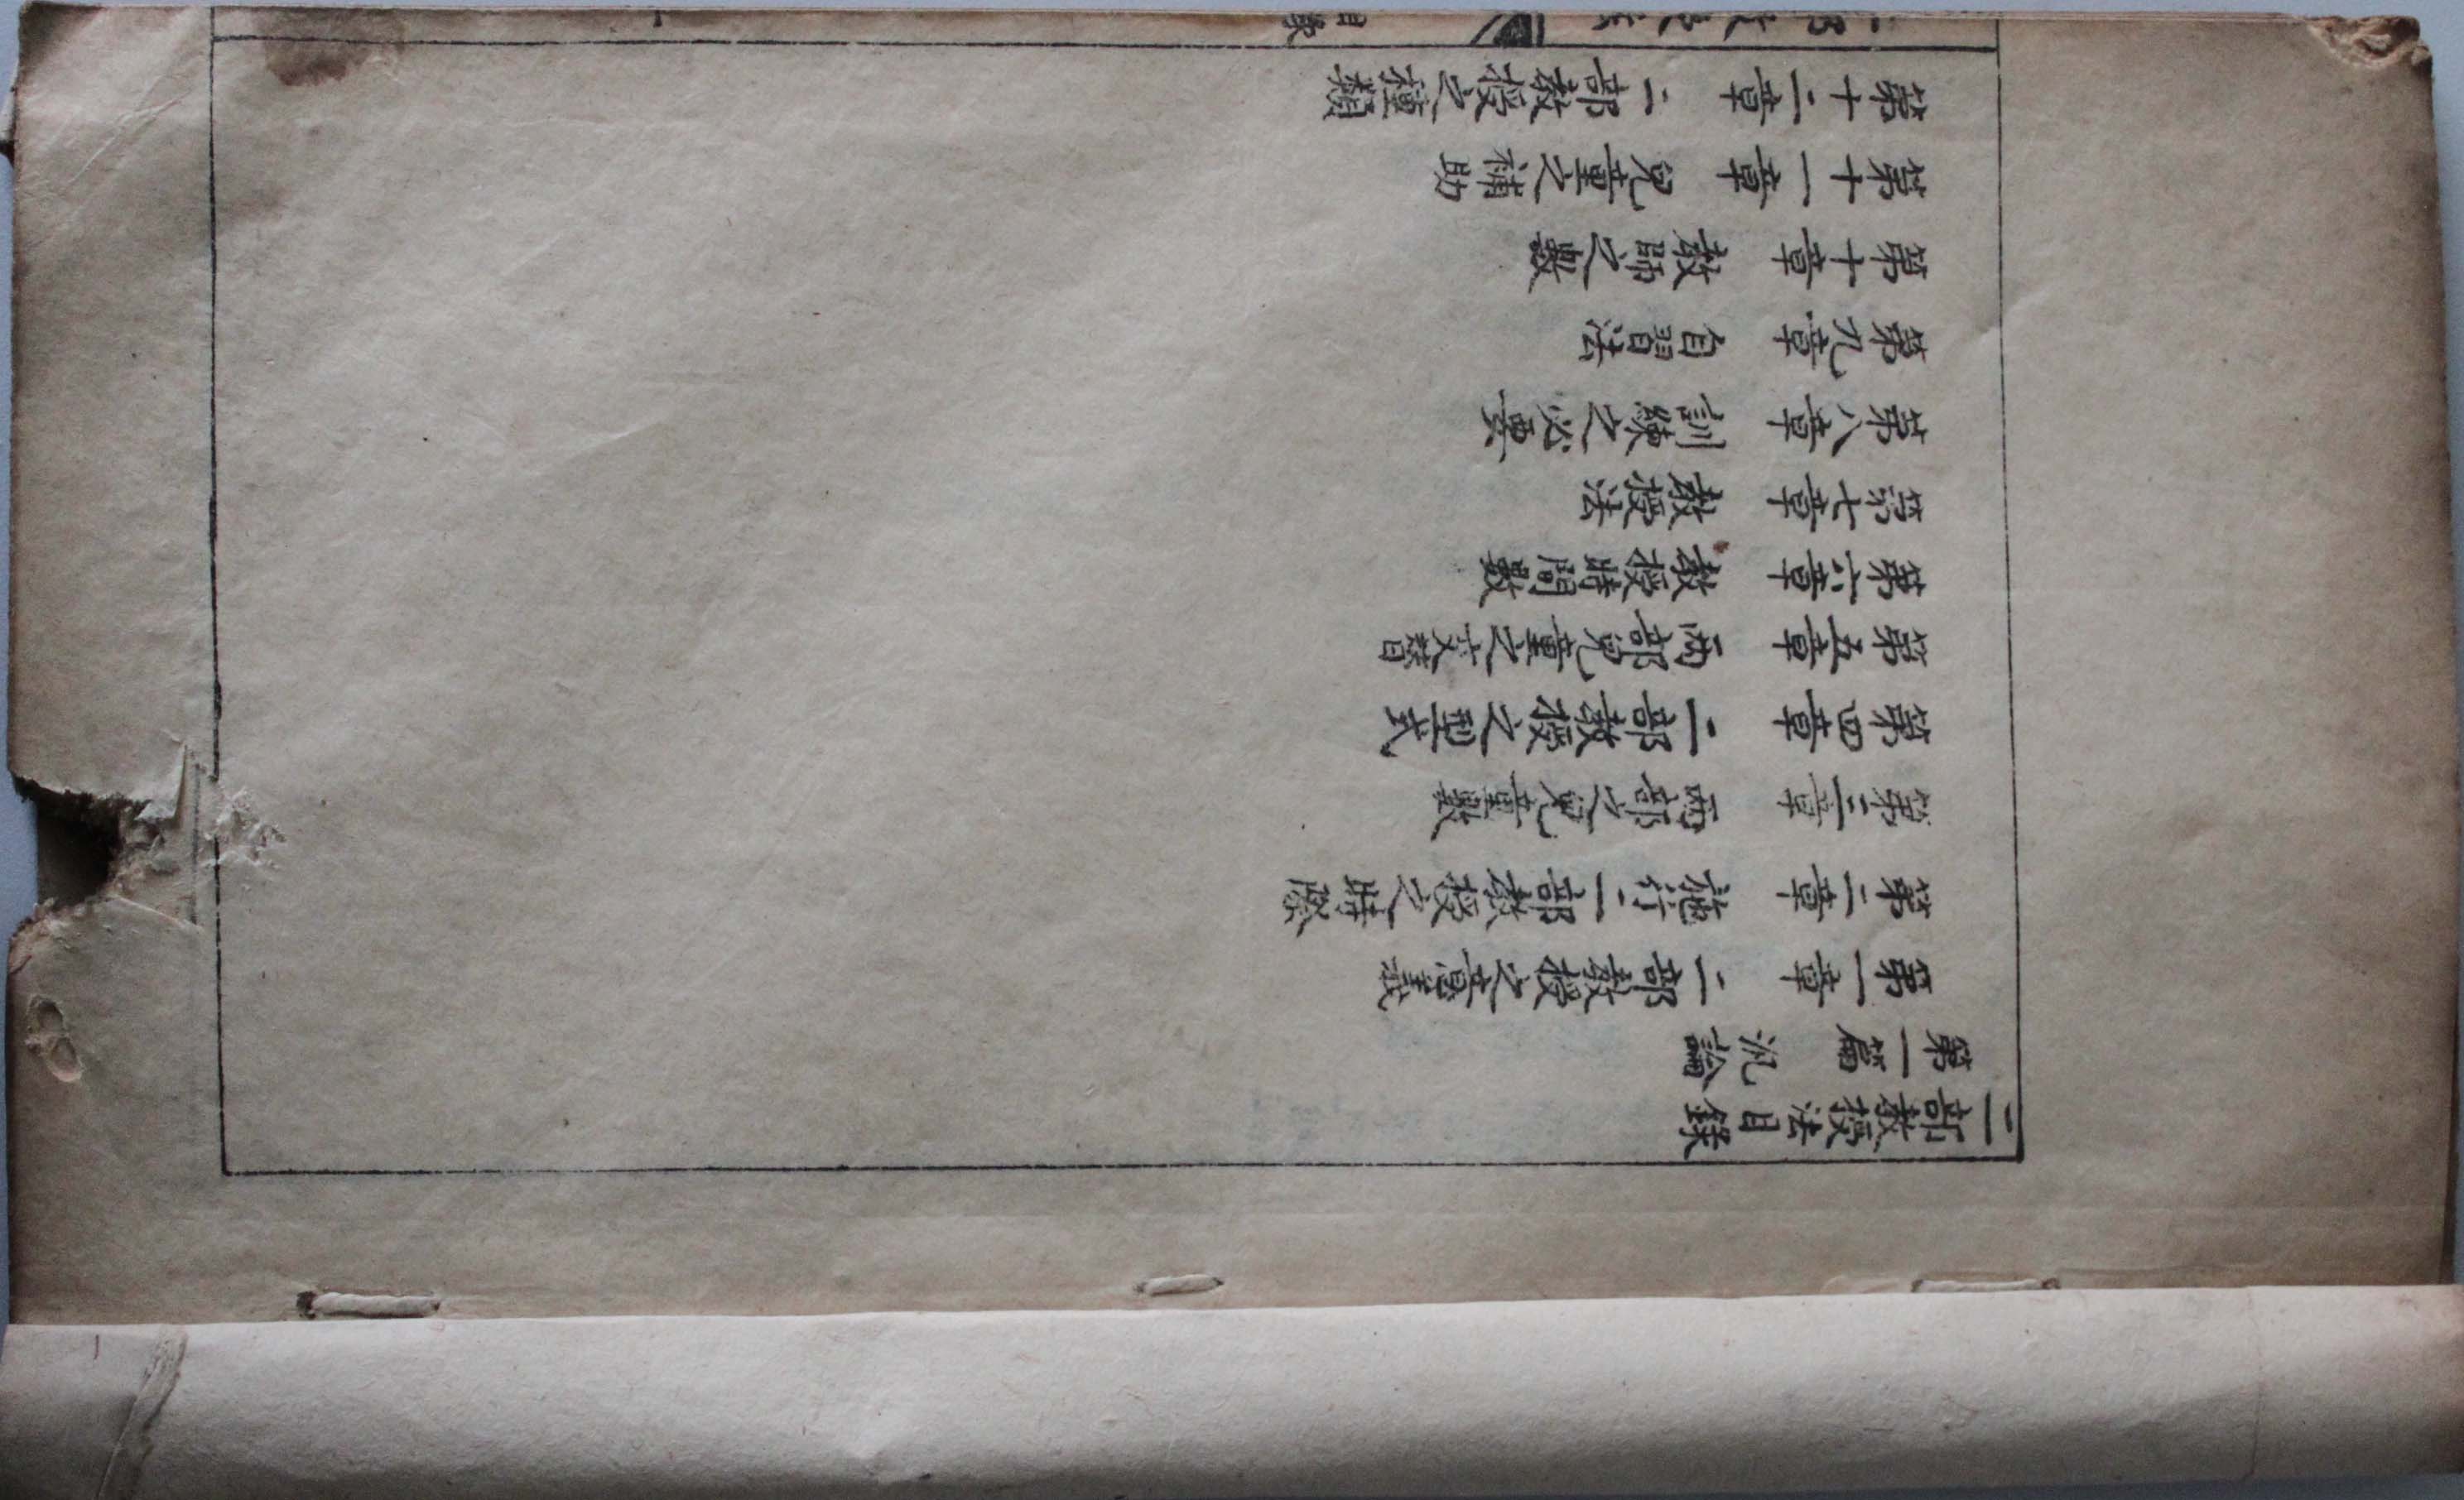 二部教授法目錄
第一篇 汎論
第一章 二部教授之意義
第二章 施行二部教授之時際
第三章 兩部之兒童數
第四章 二部教授之型式
第五章 兩部兒童之交替
第六章 教授時間數
第七章 教授法
第八章 訓練之必要
第九章 自習法
第十章 教師之數
第十一章 兒童之補助
第十二章 二部教授之種類
目錄